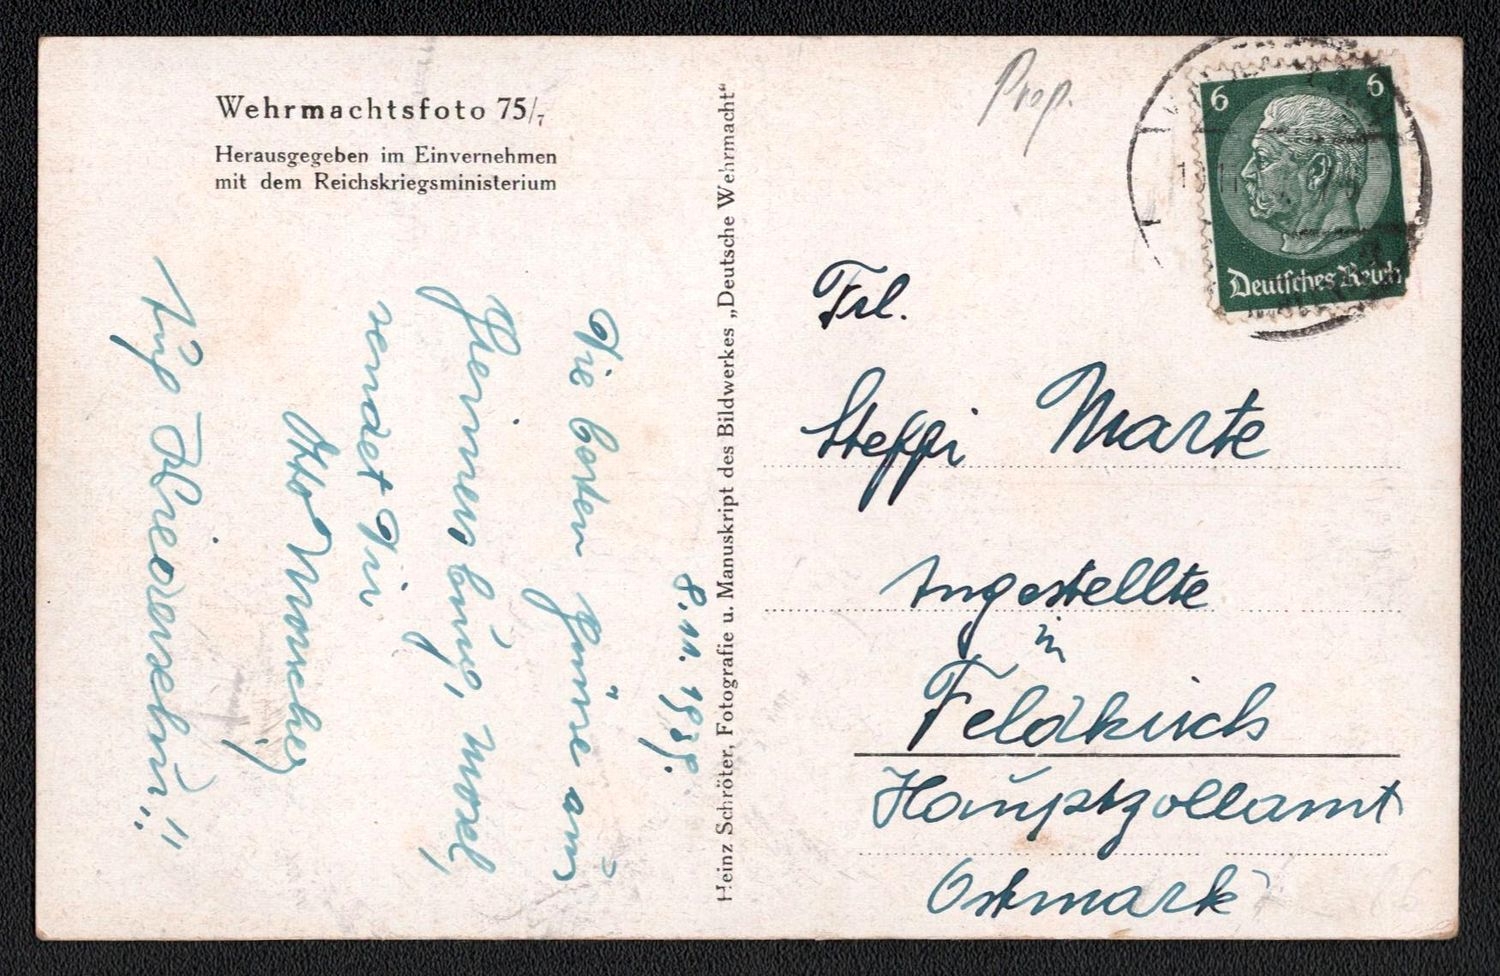 Wehrmachtsfoto 75/7
Herausgegeben im Einvernehmen
mit dem Reichskriegsministerium
Heinz Schröter, Fotografie u. Manuskript des Bildwerkes „Deutsche Wehrmacht“
8.11.1939.
Die besten Grüsse aus
Mosel,
sendet Dir
Otto
Auf Wiedersehn!!
Prop.
6 6
Deutsches Reich
Frl.
Steffi Marte
Angestellte
in
Feldkirch
Hauptzollamt
Ostmark